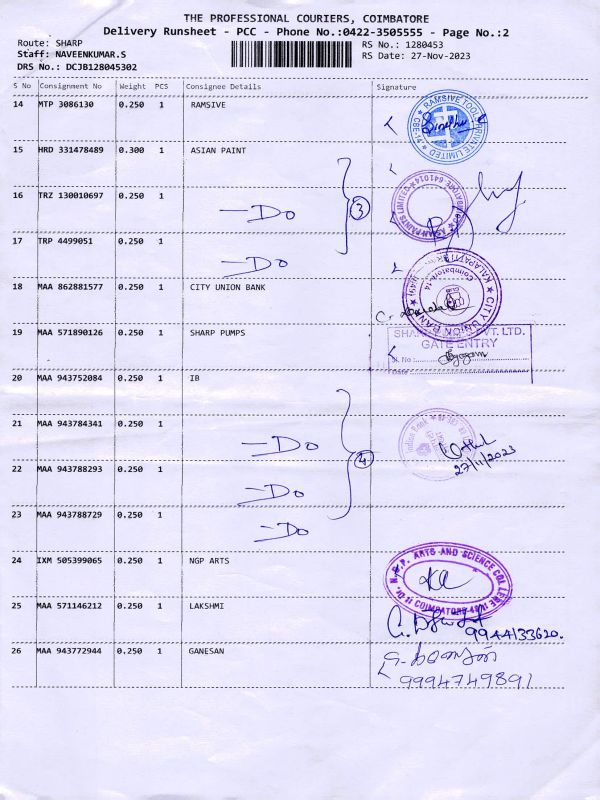 THE PROFESSIONAL COURIERS, COIMBATORE
Delivery Runsheet - PCC - Phone No.:0422-3505555 - Page No.:2
Route: SHARP
Staff: NAVEENKUMAR.S
DRS No.: DCJB128045302
RS No.: 1280453
RS Date: 27-Nov-2023
S No Consignment No Weight PCS Consignee Details Signature
14 MTP 3086130 0.250 1 RAMSIVE
RAMSIVE TOOL PRIVATE LIMITED
15 HRD 331478489 0.300 1 ASIAN PAINT
16 TRZ 130010697 0.250 1 —Do
3
ASIAN PAINTS LIMITED COIMBATORE 641014
17 TRP 4499051 0.250 1 —Do
18 MAA 862881577 0.250 1 CITY UNION BANK
CITY UNION BANK
Coimbatore-14
19 MAA 571890126 0.250 1 SHARP PUMPS
SHARP PVT. LTD.
GATE ENTRY
Sl. No :
Date :
20 MAA 943752084 0.250 1 IB
21 MAA 943784341 0.250 1 —Do
4
Indian Bank
27/11/2023
22 MAA 943788293 0.250 1 —Do
23 MAA 943788729 0.250 1 —Do
24 IXM 505399065 0.250 1 NGP ARTS
Dr. N.G.P. ARTS AND SCIENCE COLLEGE
COIMBATORE
25 MAA 571146212 0.250 1 LAKSHMI
9944133620.
26 MAA 943772944 0.250 1 GANESAN
9994749891